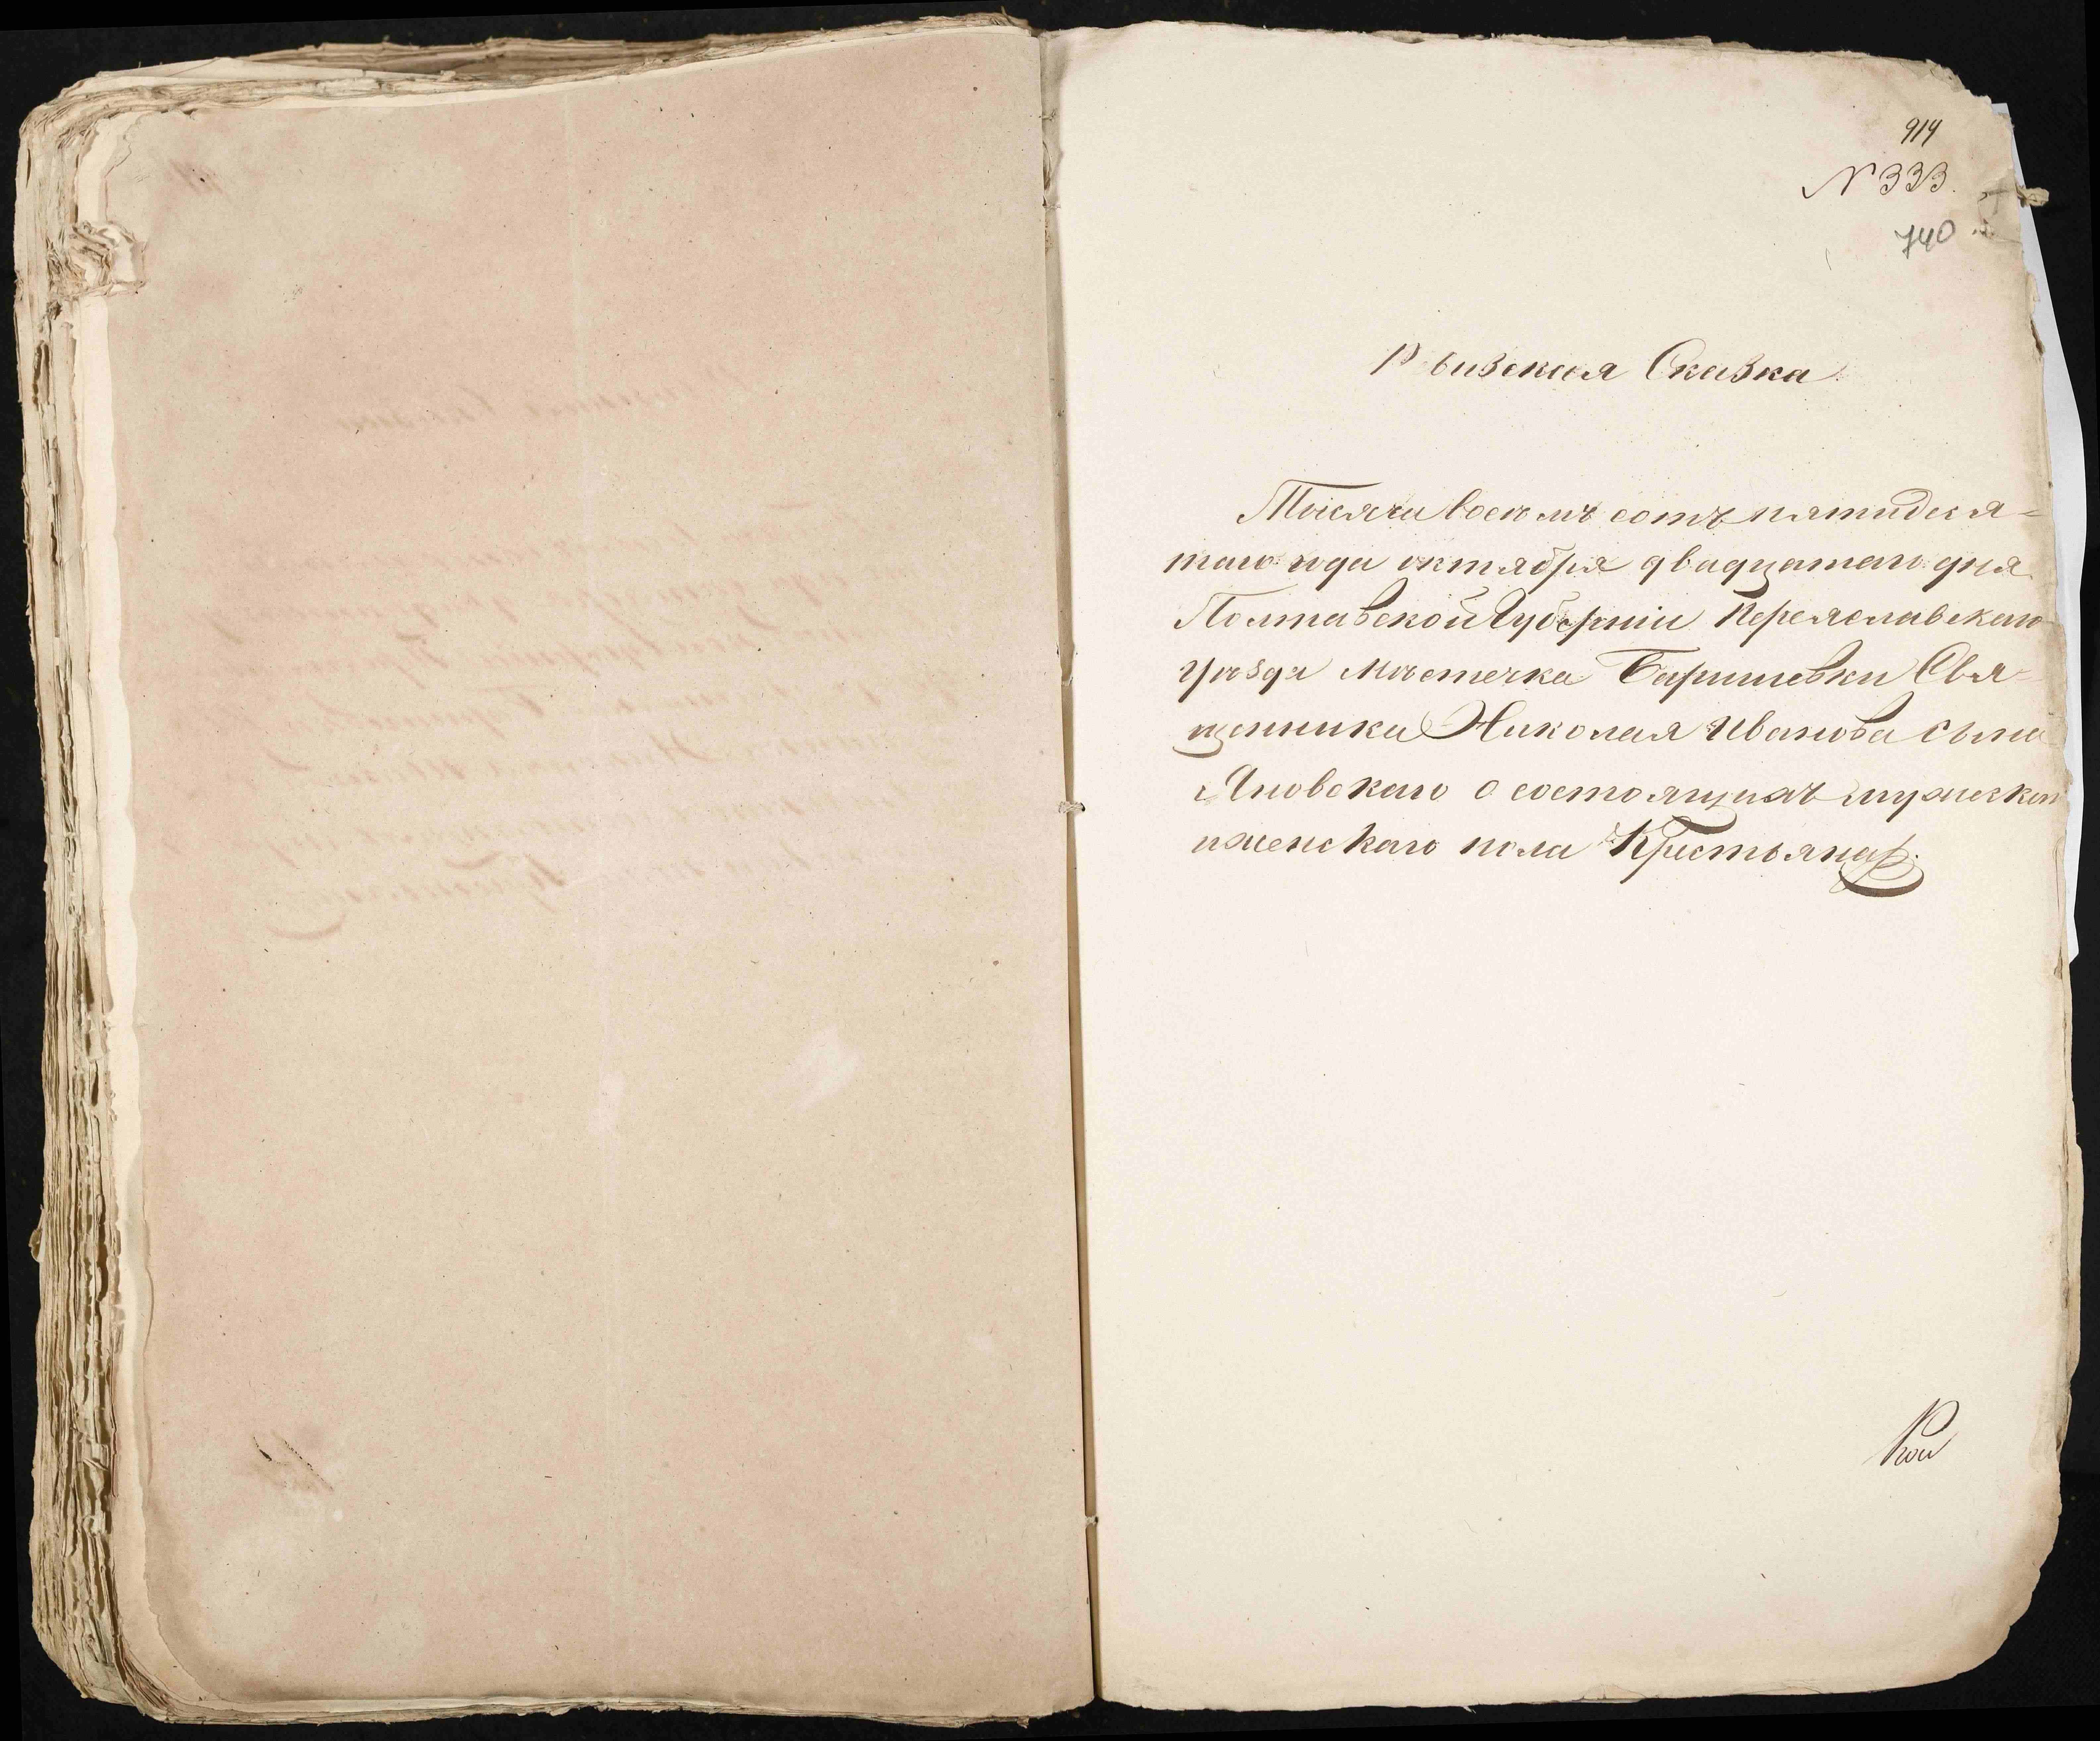 914
N 333.
740
Ревизская Сказка
Тысяча восемь сотъ пятидеся-
таго года октября двадцатаго дня
Полтавской Губерніи Переяславскаго
уѣзда мѣстечка Баришевки Свя-
щенника Николая Иванова сына
Яновскаго о состоящихъ мужеска
и женскаго пола Крестьянах